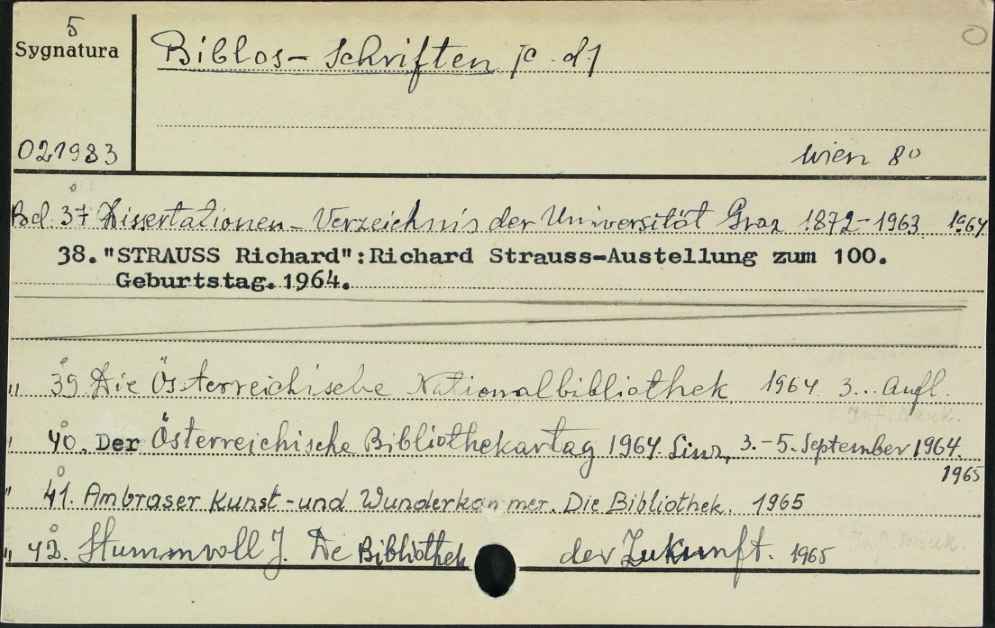 5
Sygnatura
Biblos-Schriften [c.d.]
021983
Wien 8°
Bd. 37 Dissertationen-Verzeichnis der Universität Graz 1872-1963 1964
38. "STRAUSS Richard":Richard Strauss-Austellung zum 100.
Geburtstag. 1964.
" 39 Die Österreichische Nationalbibliothek 1964 3. Aufl.
" 40. Der Österreichische Bibliothekartag 1964. Linz, 3.-5. September 1964.
1965
" 41. Ambraser Kunst-und Wunderkammer. Die Bibliothek. 1965
" 42. Stummvoll J. Die Bibliothek der Zukunft. 1965